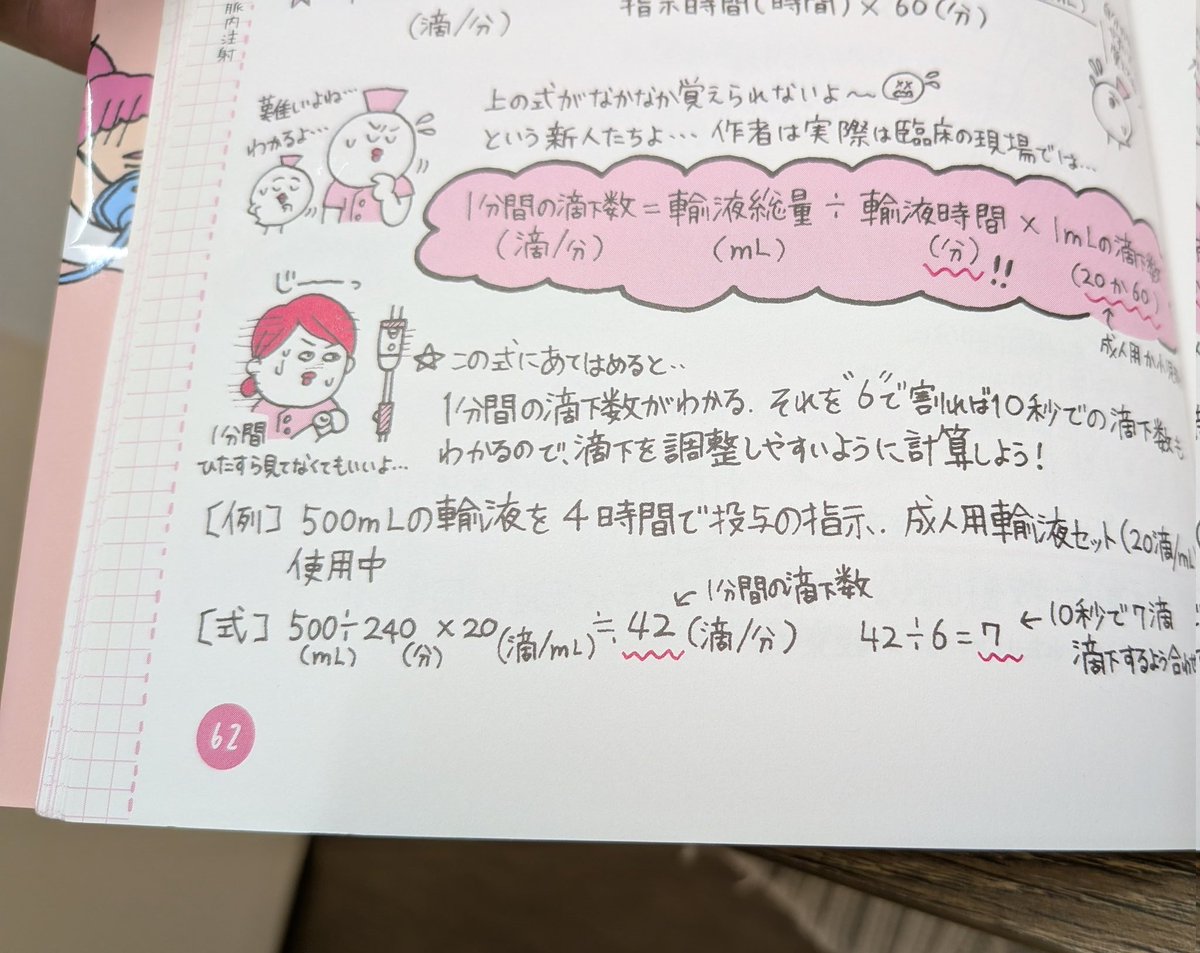 脈内注射
(滴/分)
指示時間(時間) × 60(分)
難しいよね…
わかるよ…
上の式がなかなか覚えられないよ〜
という新人たちよ… 作者は実際は臨床の現場では…
1分間の滴下数 = 輸液総量 ÷ 輸液時間 × 1mLの滴下数
(滴/分) (mL) (分)!! (20か60)
成人用か
じーーっ
1分間
ひたすら見てなくてもいいよ…
☆この式にあてはめると‥
1分間の滴下数がわかる. それを"6"で割れば10秒での滴下数も
わかるので、滴下を調整しやすいように計算しよう!
[例] 500mLの輸液を4時間で投与の指示. 成人用輸液セット(20滴/mL
使用中
←1分間の滴下数
[式] 500÷240 × 20(滴/mL)≒42(滴/分) 42÷6=7 ←10秒で7滴
(mL) (分) 滴下するよう合わせ
62